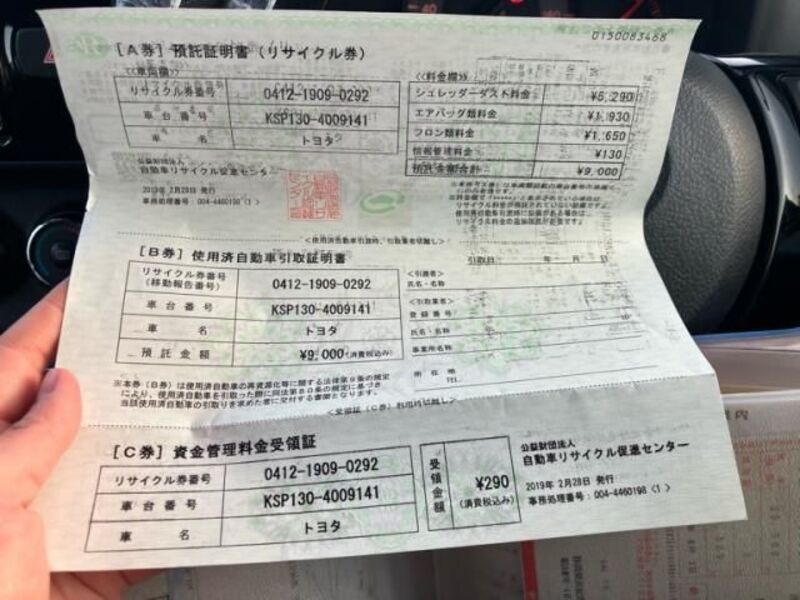 0150083468
[A券] 預託証明書 (リサイクル券)
<車両欄>
リサイクル券番号 0412-1909-0292
車台番号 KSP130-4009141
車名 トヨタ
<料金欄>
シュレッダーダスト料金 ¥5,290
エアバッグ類料金 ¥1,930
フロン類料金 ¥1,650
情報管理料金 ¥130
預託金額合計 ¥9,000
公益財団法人
自動車リサイクル促進センター
2019年 2月28日 発行
事務処理番号:004-4460198 (1)
<使用済自動車引渡時、引取業者切離し>
[B券] 使用済自動車引取証明書
引取日 年 月 日
リサイクル券番号
(移動報告番号) 0412-1909-0292
車台番号 KSP130-4009141
車名 トヨタ
預託金額 ¥9,000 (消費税込み)
<引渡者>
氏名・名称
<引取業者>
登録番号
氏名・名称
事業所名称
所在地
TEL.
※本券(B券)は使用済自動車の再資源化等に関する法律第9条の規定
により、使用済自動車を引取った際に同法第80条の規定に基づき
当該使用済自動車の引取りを求めた者に交付する書面となります。
<受領証(C券)利用時切離し>
[C券] 資金管理料金受領証
リサイクル券番号 0412-1909-0292
車台番号 KSP130-4009141
車名 トヨタ
受領金額 ¥290
(消費税込み)
公益財団法人
自動車リサイクル促進センター
2019年 2月28日 発行
事務処理番号:004-4460198 (1)